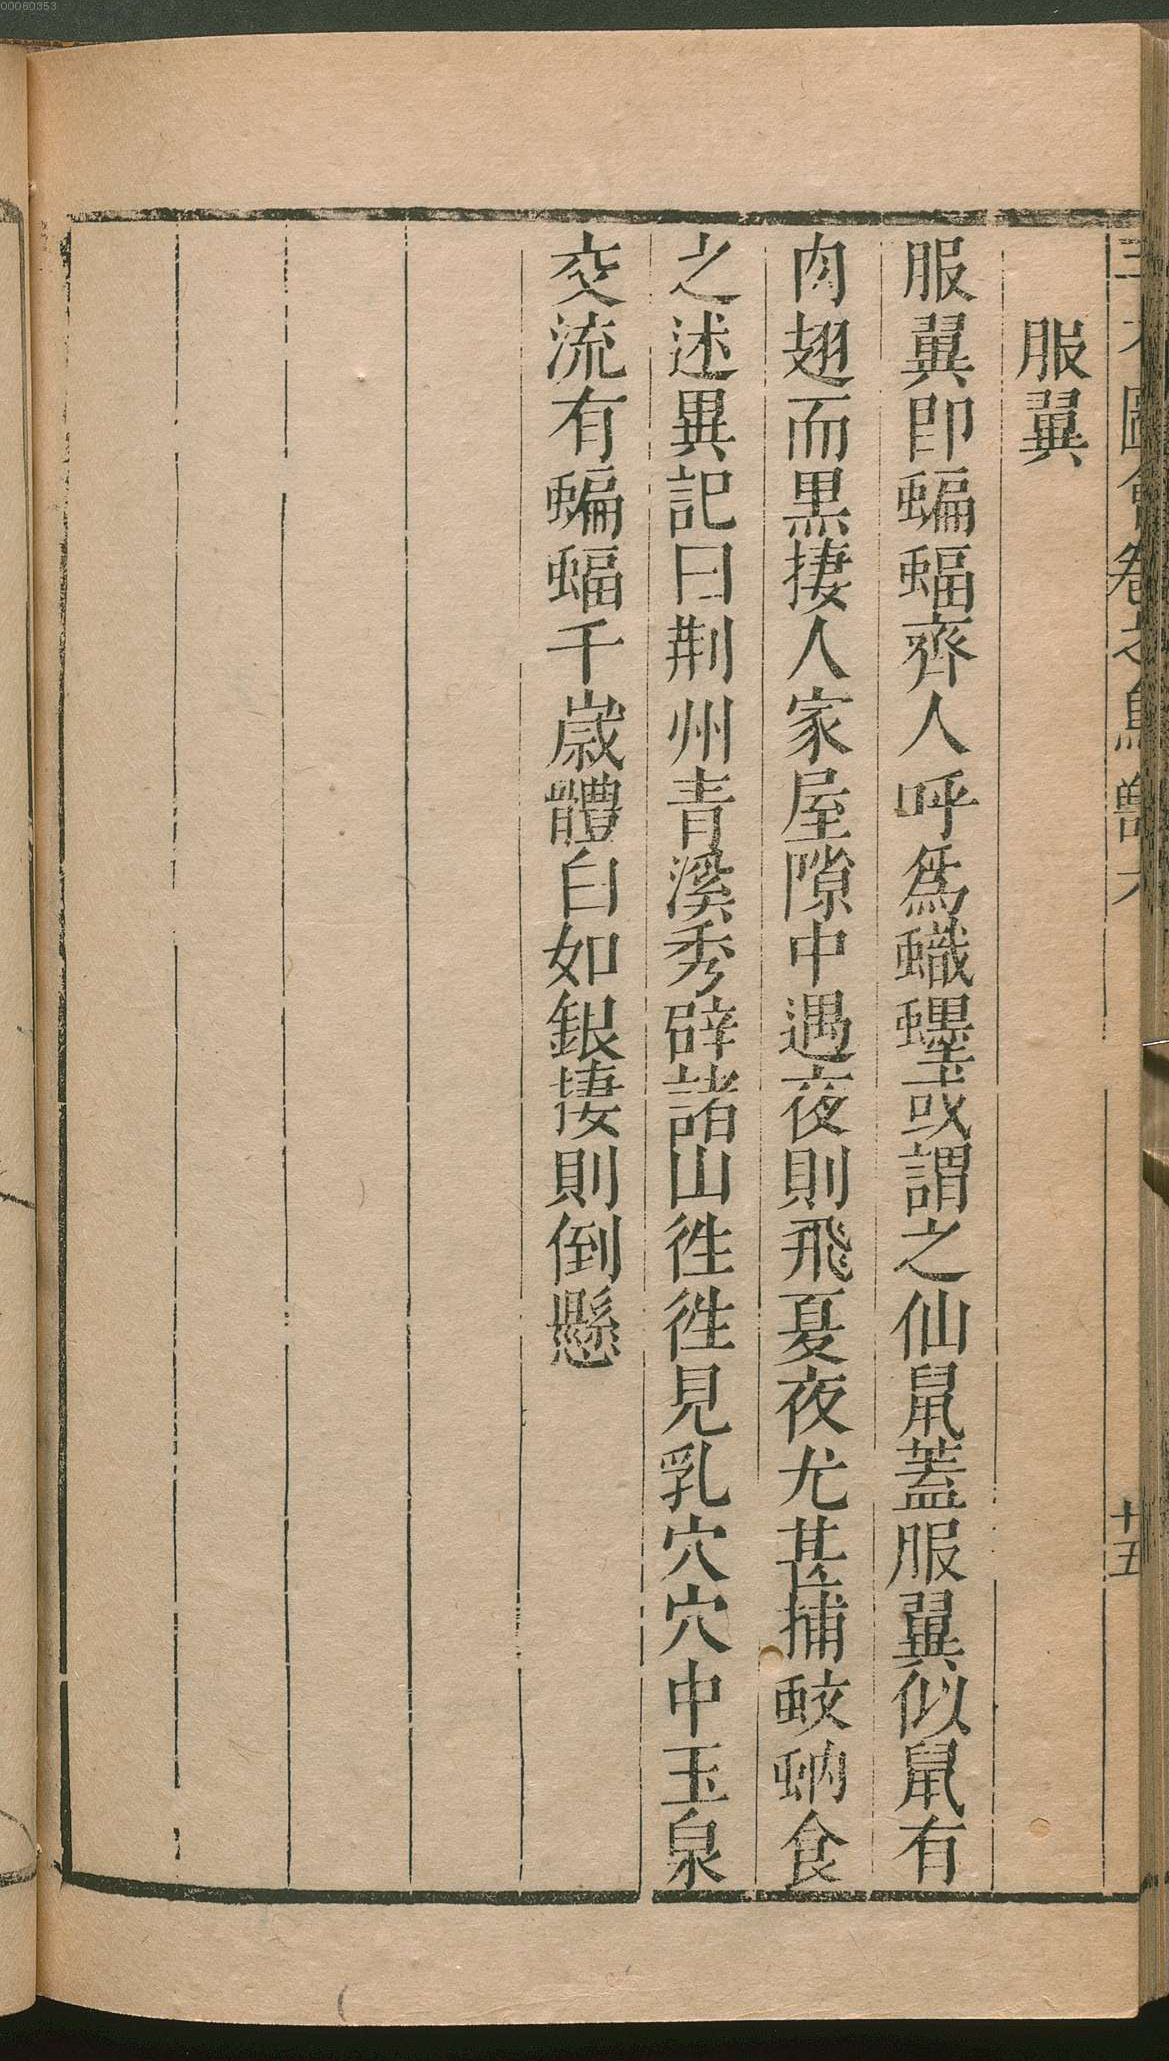 00060353
圖會卷之鳥獸
十五
服翼
服翼即蝙蝠齊人呼爲蟙䘃或謂之仙鼠蓋服翼似鼠有
肉翅而黒捿人家屋隙中遇夜則飛夏夜尤甚捕蚊蚋食
之述異記曰荆州青溪秀辟諸山徃徃見乳穴穴中玉泉
交流有蝙蝠千歲體白如銀捿則倒懸